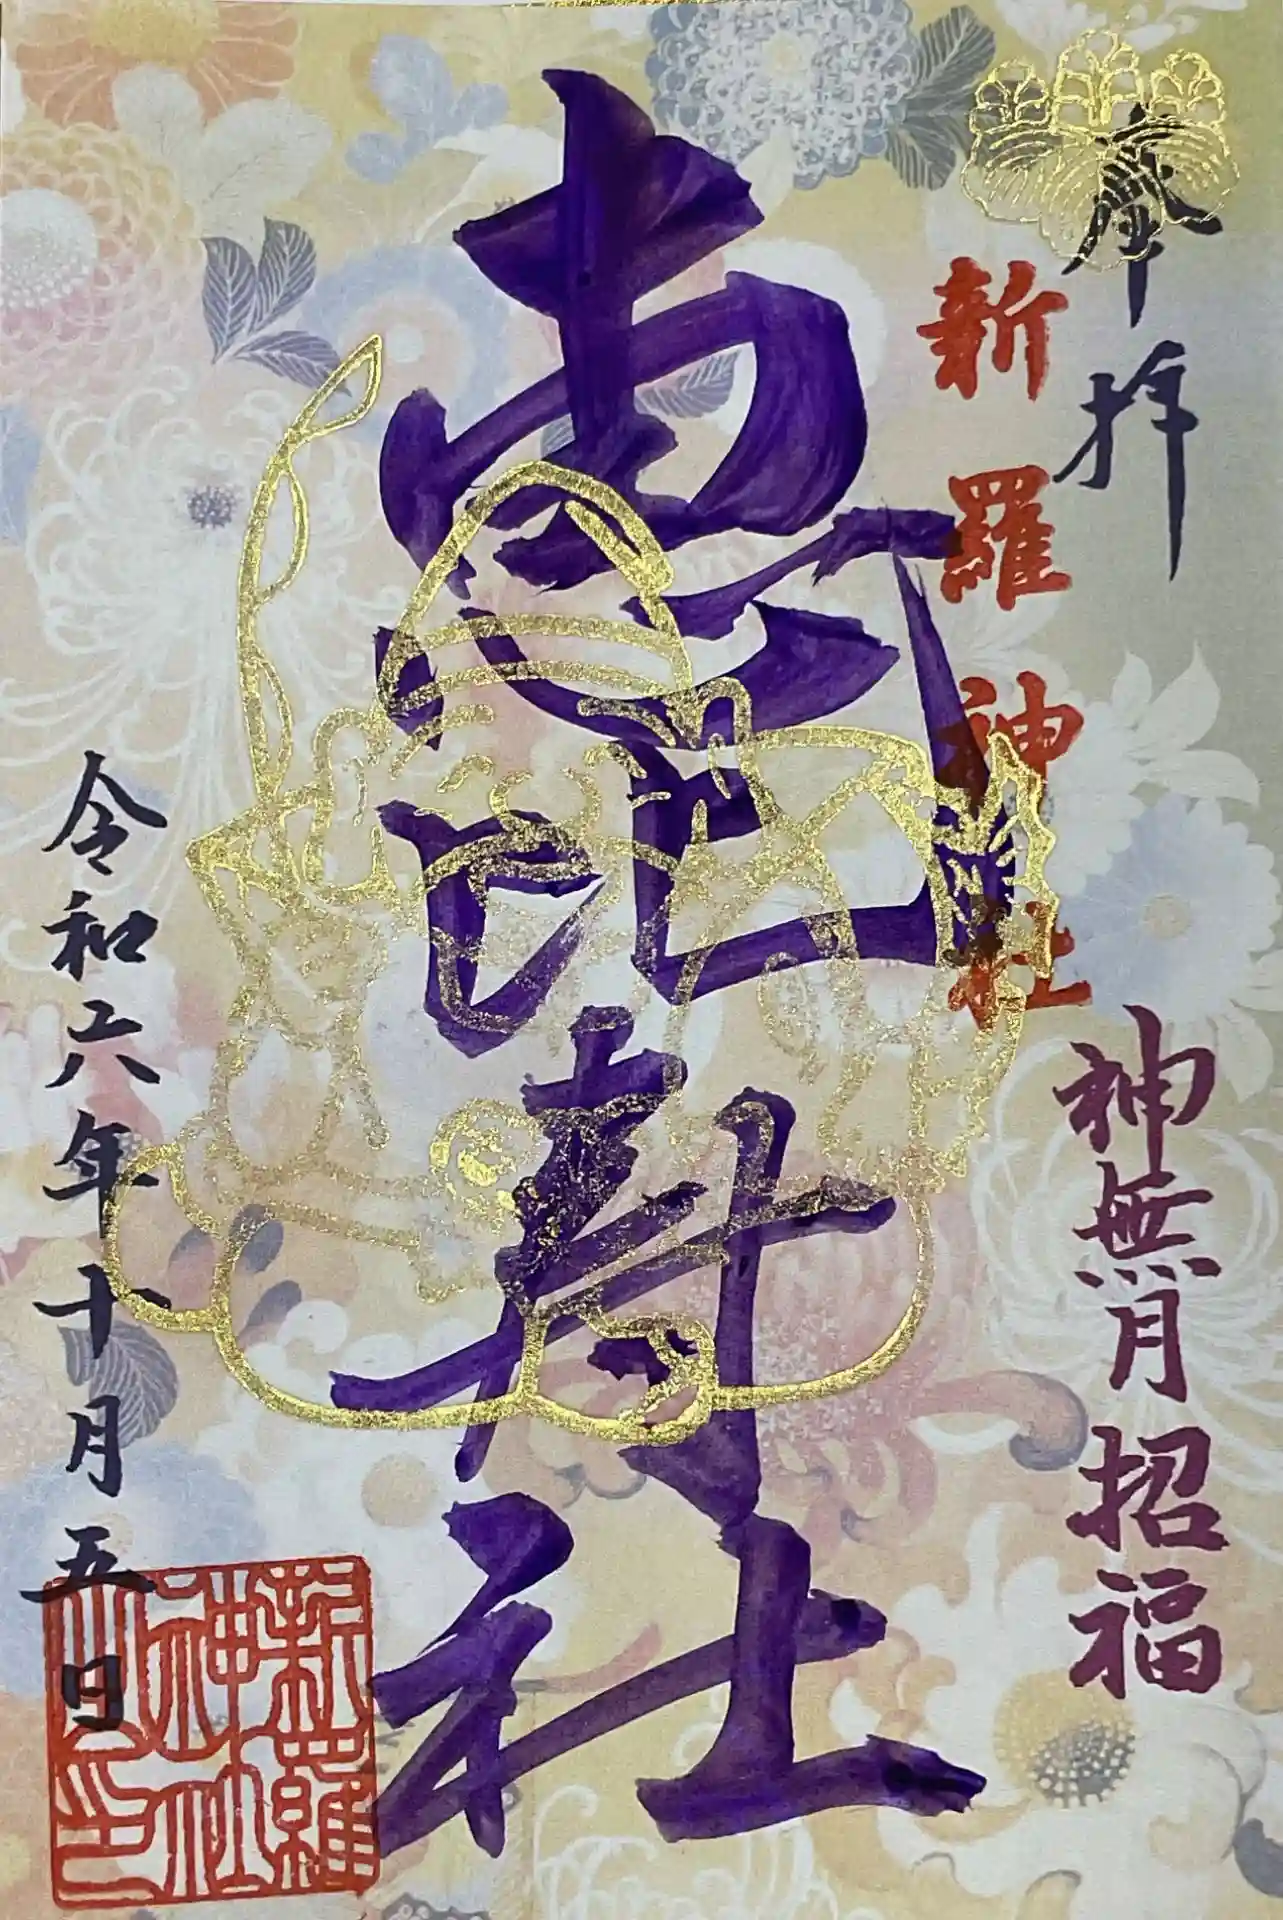 奉拝
新羅神社
神無月招福
恵比寿社
令和六年十月五日
新羅
神社
之印